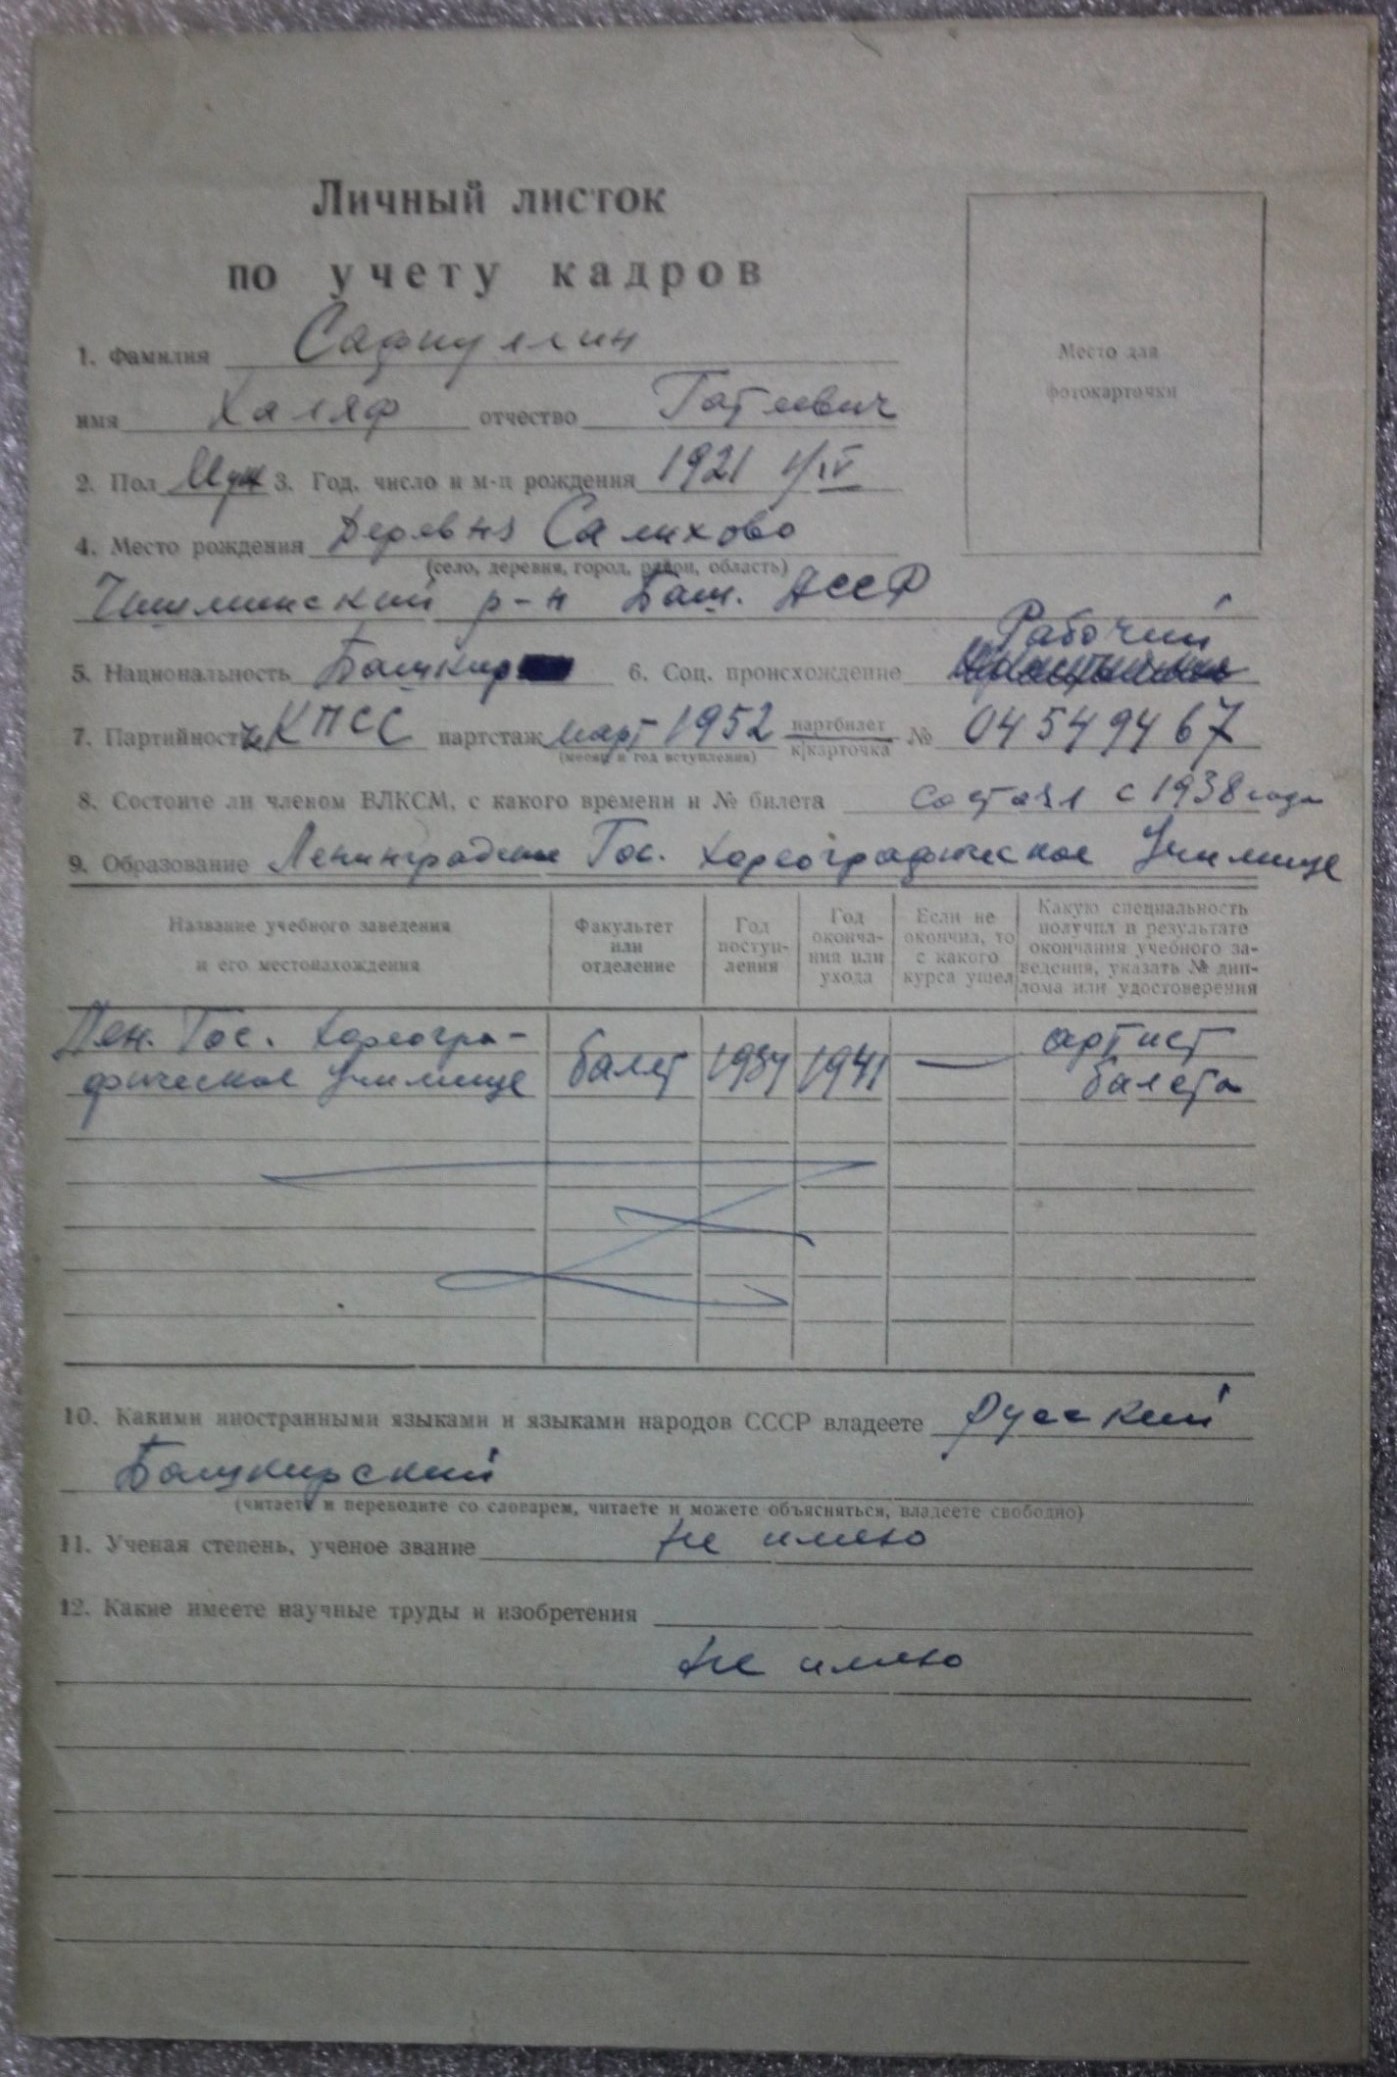 Личный листок
по учету кадров
Место для
фотокарточки
1. Фамилия Сафиуллин
имя Халяф отчество Гатиевич
2. Пол Муж 3. Год, число и м-ц рождения 1921 1/IV
4. Место рождения Деревня Салихово
(село, деревня, город, район, область)
Чишминский р-н Баш. АССР
Рабочий
5. Национальность Башкир 6. Соц. происхождение
7. Партийность чКПСС партстаж март 1952 партбилет № 04549467
(месяц и год вступления) к/карточка
8. Состоите ли членом ВЛКСМ, с какого времени и № билета состоял с 1938 года
9. Образование Ленинградское Гос. Хореографическое Училище
Название учебного заведения и его местонахождения
Факультет или отделение
Год поступ-ления
Год оконча-ния или ухода
Если не окончил, то с какого курса ушел
Какую специальность получил в результате окончания учебного за-ведения, указать № дип-лома или удостоверения
Лен. Гос. Хореогра- артист
фическое Училище балет 1934 1941 — балета
10. Какими иностранными языками и языками народов СССР владеете Русский
Башкирский
(читаете и переводите со словарем, читаете и можете объясняться, владеете свободно)
11. Ученая степень, ученое звание не имею
12. Какие имеете научные труды и изобретения
не имею